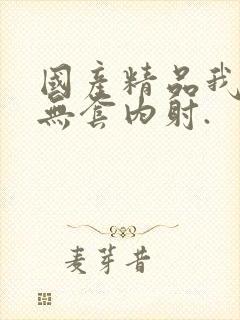 國产精品我
無套内射.
麦芽昔